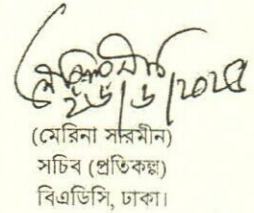 ২৬/৬/২০২৫
(মেরিনা সারমীন)
সচিব (প্রতিকল্প)
বিএডিসি, ঢাকা।